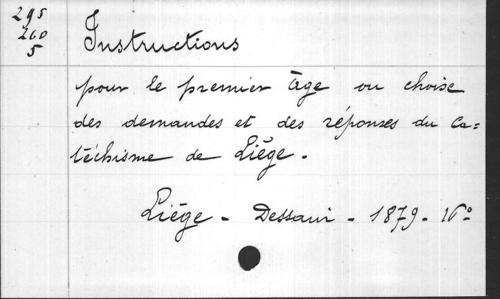 295
260
5
Instructions
pour le premier âge ou choise
des demandes et des réponses du Ca=
téchisme de Liége.
Liége - Dessain - 1879 - 16°